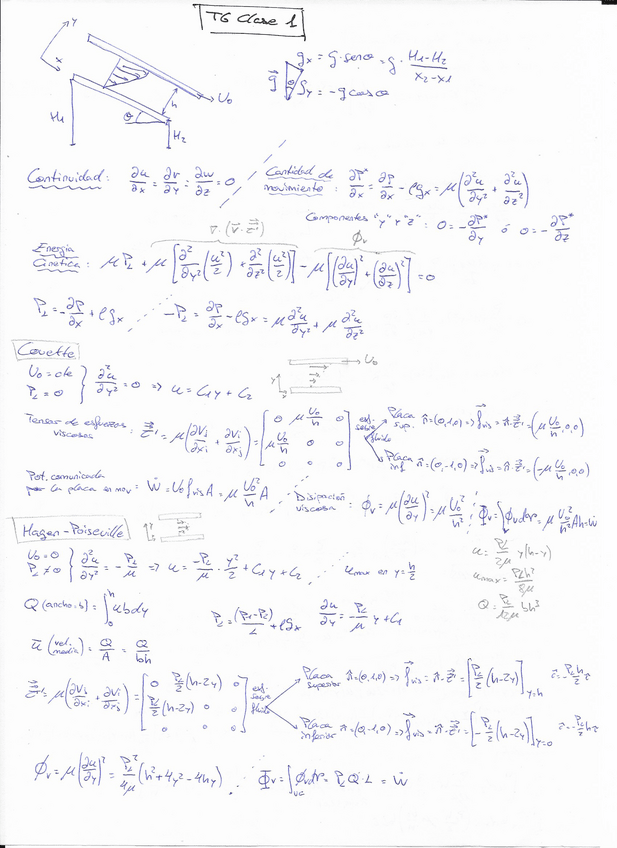 TG Clase 1
y
x
H1
θ
h
H2
U0
g⃗
θ
gx = g·senθ = g · (H1-H2)/(x2-x1)
gy = -g cosθ
Continuidad: ∂u/∂x = ∂v/∂y = ∂w/∂z = 0
Cantidad de movimiento: ∂P*/∂x = ∂P/∂x - ρgx = μ(∂²u/∂y² + ∂²u/∂z²)
Componentes "y" y "z": 0 = -∂P*/∂y ó 0 = -∂P*/∂z
∇·(v⃗·τ')
ϕv
Energía Cinética: μPL + μ[∂²/∂y²(u²/2) + ∂²/∂z²(u²/2)] - μ[(∂u/∂y)² + (∂u/∂z)²] = 0
PL = -∂P/∂x + ρgx
-PL = ∂P/∂x - ρgx = μ ∂²u/∂y² + μ ∂²u/∂z²
Couette
U0 = cte
PL = 0
} ∂²u/∂y² = 0 => u = C1y + C2
y
x
U0
Tensor de esfuerzos viscosos: τ' = μ(∂vj/∂xi + ∂vi/∂xj) = [0 μU0/h 0; μU0/h 0 0; 0 0 0]
esf. sobre fluido
Placa sup. n⃗=(0,1,0) => f⃗vis = n⃗·τ' = (μU0/h,0,0)
Placa inf. n⃗=(0,-1,0) => f⃗vis = n⃗·τ' = (-μU0/h,0,0)
Pot. comunicada por la placa en mov: Ẇ = U0 fvis A = μ U0²/h A
Disipación viscosa: ϕv = μ(∂u/∂y)² = μ U0²/h²
Φv = ∫ϕv dv = μ U0²/h² Ah = Ẇ
Hagen-Poiseville
U0 = 0
PL ≠ 0
} ∂²u/∂y² = -PL/μ => u = -PL/μ · y²/2 + C1y + C2
umax en y = h/2
u = PL/2μ y(h-y)
umax = PLh²/8μ
Q = PL/12μ bh³
Q (ancho=b) = ∫₀ʰ ub dy
PL = (P1-P2)/L + ρgx
∂u/∂y = -PL/μ y + C1
ū (vel. media) = Q/A = Q/bh
τ' = μ(∂vj/∂xi + ∂vi/∂xj) = [0 PL/2(h-2y) 0; PL/2(h-2y) 0 0; 0 0 0]
esf. sobre fluido
Placa superior n⃗=(0,1,0) => f⃗vis = n⃗·τ' = [PL/2(h-2y)]y=h τ=-PL/2 h
Placa inferior n⃗=(0,-1,0) => f⃗vis = n⃗·τ' = [-PL/2(h-2y)]y=0 τ=-PL/2 h
ϕv = μ(∂u/∂y)² = PL²/4μ (h²+4y²-4hy)
Φv = ∫vc ϕv dv = PL Q·L = Ẇ